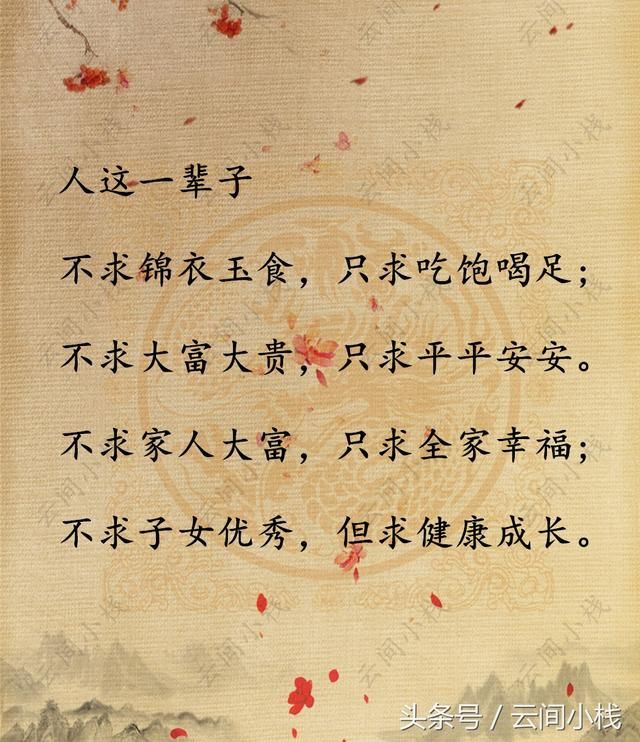 人这一辈子
不求锦衣玉食，只求吃饱喝足；
不求大富大贵，只求平平安安。
不求家人大富，只求全家幸福；
不求子女优秀，但求健康成长。
头条号 / 云间小栈
云间小栈